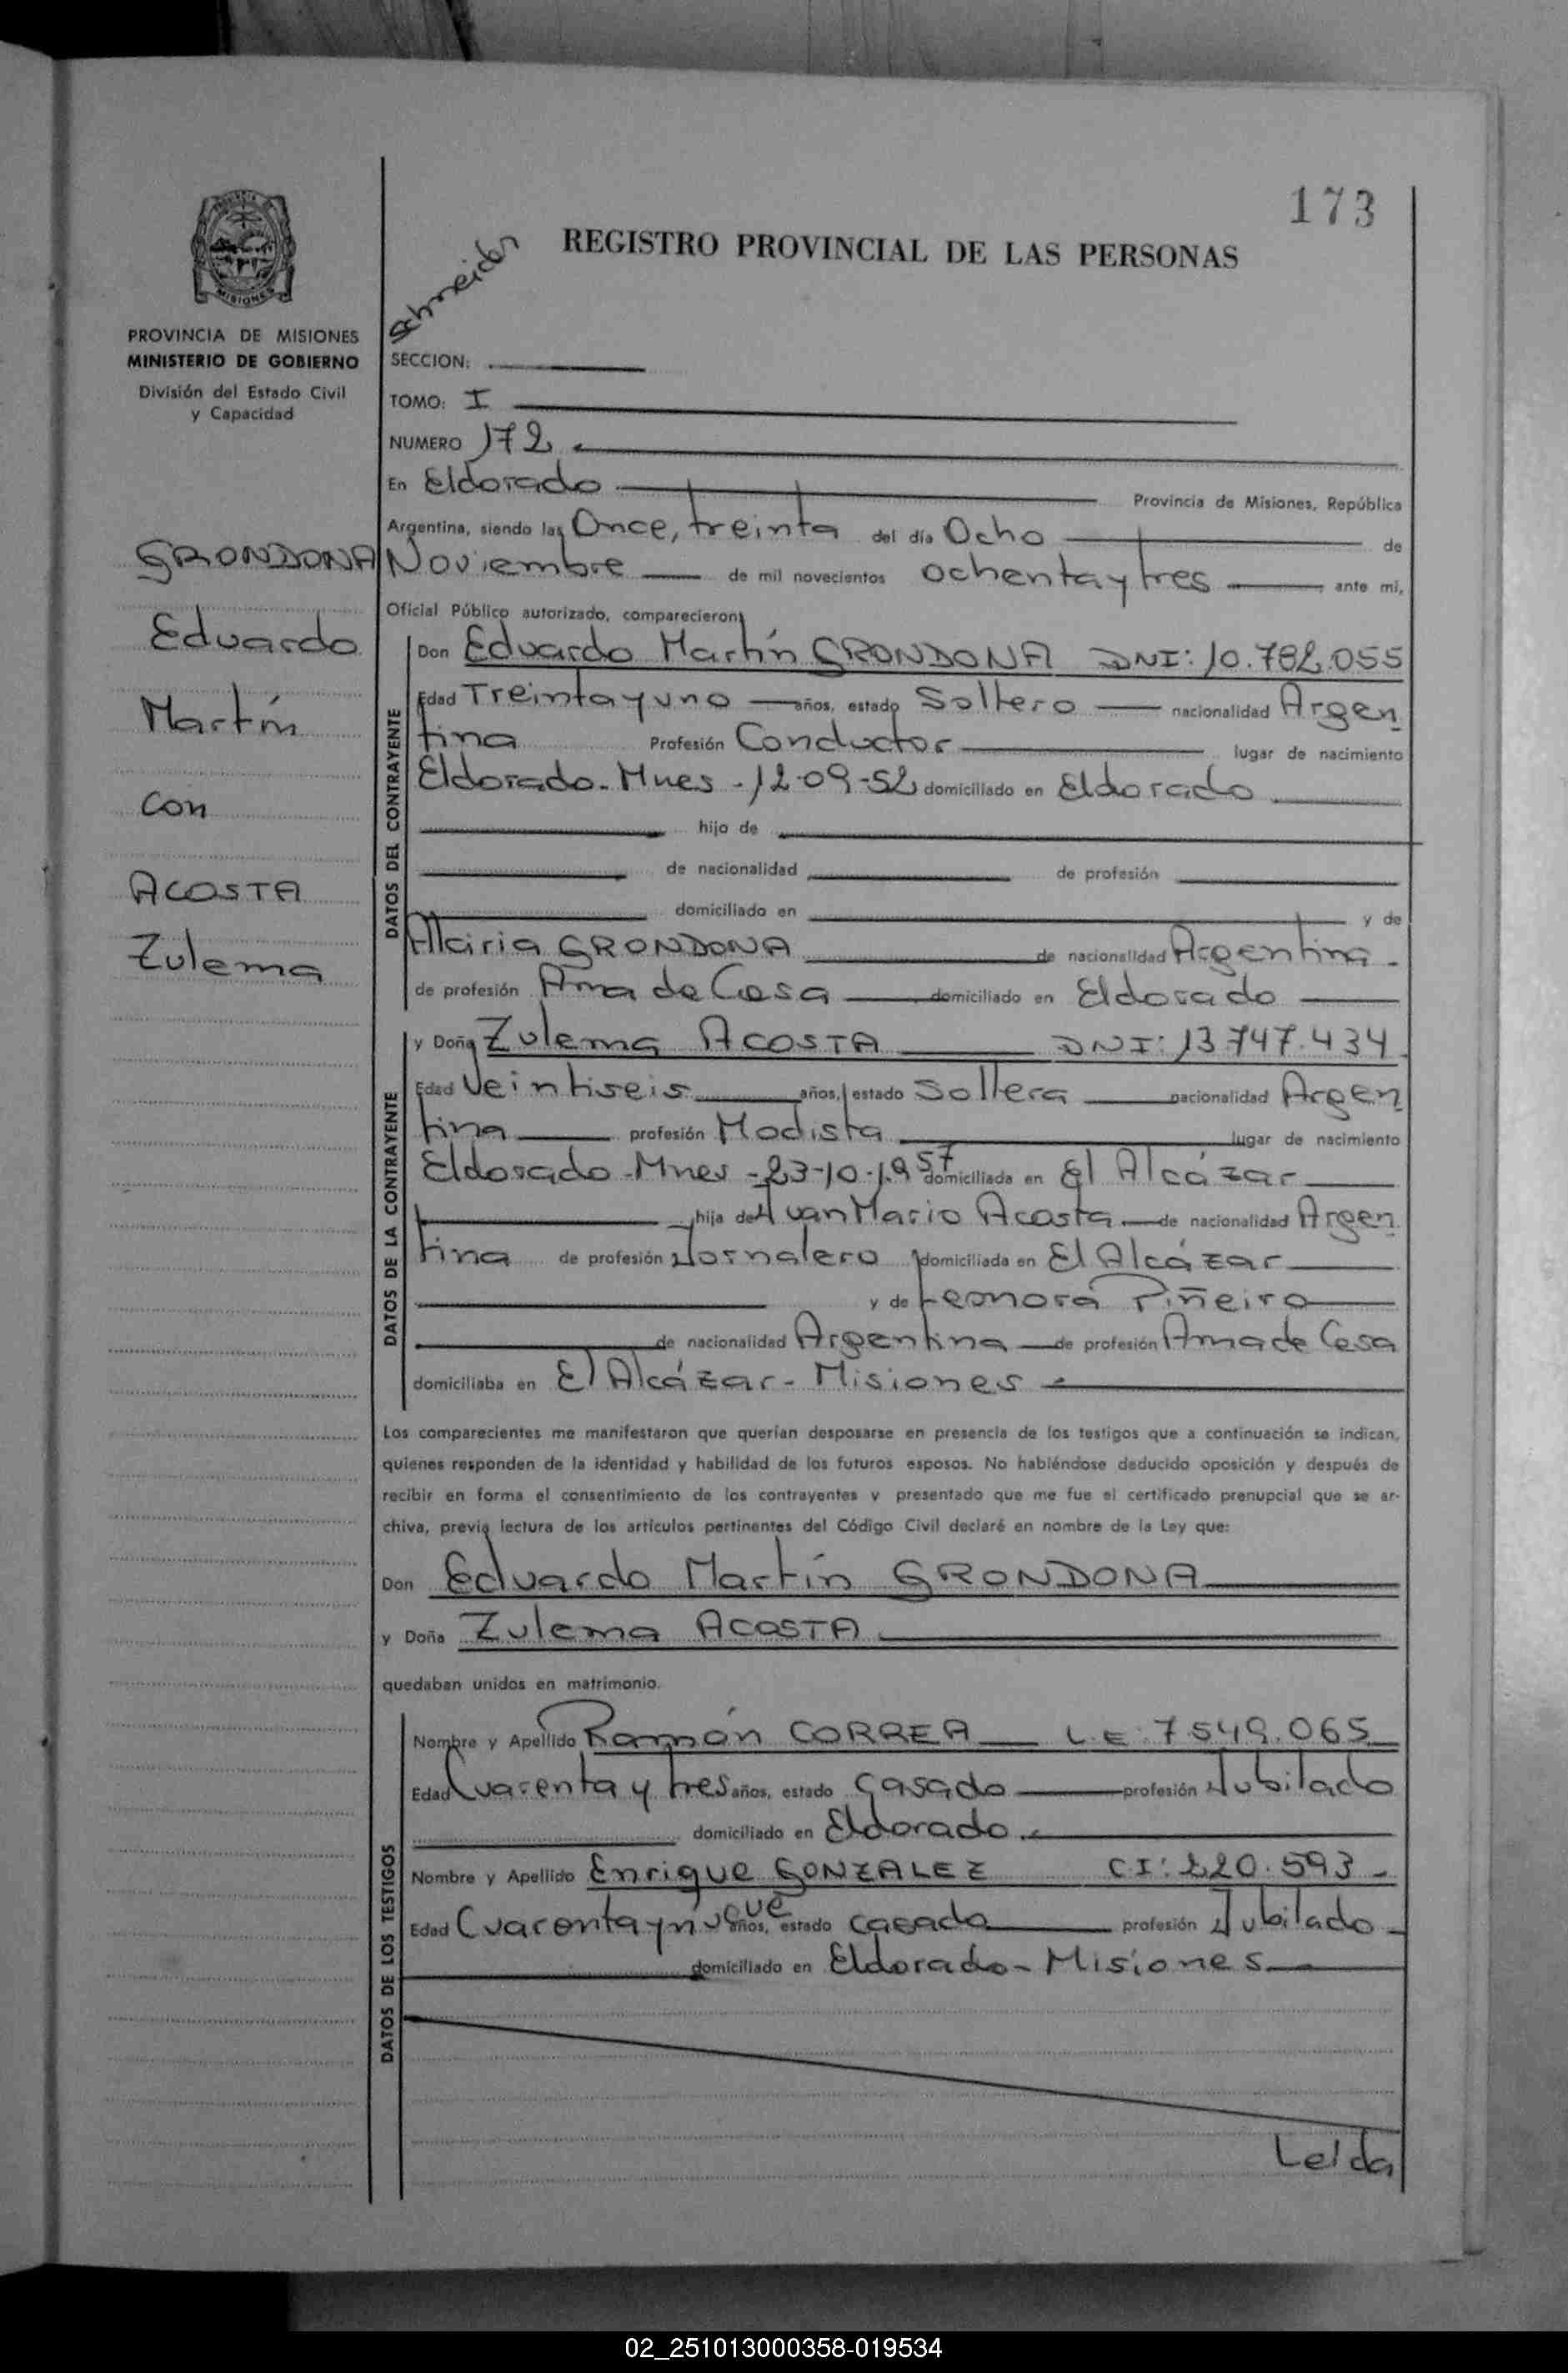 173
Schneider
REGISTRO PROVINCIAL DE LAS PERSONAS
MISIONES
PROVINCIA DE MISIONES
MINISTERIO DE GOBIERNO
División del Estado Civil
y Capacidad
SECCION:
TOMO: I
NUMERO 172
GRONDONA
Eduardo
Martín
con
ACOSTA
Zulema
En Eldorado Provincia de Misiones, República
Argentina, siendo las Once, treinta del día Ocho de
Noviembre de mil novecientos ochenta y tres ante mi,
Oficial Público autorizado, comparecieron:
DATOS DEL CONTRAYENTE
Don Eduardo Martín GRONDONA DNI: 10.782.055
Edad Treinta y uno años, estado Soltero nacionalidad Argen
tina Profesión Conductor lugar de nacimiento
Eldorado-Mnes-12-09-52 domiciliado en Eldorado
hijo de
de nacionalidad de profesión
domiciliado en y de
GRONDONA de nacionalidad Argentina-
de profesión Ama de Casa domiciliado en Eldorado
DATOS DE LA CONTRAYENTE
y Doña Zulema ACOSTA DNI: 13.747.434
Edad Veintiseis años, estado Soltera nacionalidad Argen
tina profesión Modista lugar de nacimiento
Eldorado-Mnes-23-10-1957 domiciliada en El Alcázar
hija de Juan Mario Acosta de nacionalidad Argen
tina de profesión Jornalero domiciliada en El Alcázar
y de Leonora Piñeiro
de nacionalidad Argentina de profesión Ama de Casa
domiciliaba en El Alcázar-Misiones
Los comparecientes me manifestaron que querían desposarse en presencia de los testigos que a continuación se indican,
quienes responden de la identidad y habilidad de los futuros esposos. No habiéndose deducido oposición y después de
recibir en forma el consentimiento de los contrayentes y presentado que me fue el certificado prenupcial que se ar-
chiva, previa lectura de los artículos pertinentes del Código Civil declaré en nombre de la Ley que:
Don Eduardo Martín GRONDONA
y Doña Zulema ACOSTA
quedaban unidos en matrimonio.
DATOS DE LOS TESTIGOS
Nombre y Apellido Ramón CORREA L.E: 7.549.065
Edad Cuarenta y tres años, estado casado profesión Jubilado
domiciliado en Eldorado
Nombre y Apellido Enrique GONZALEZ C.I: 220.593-
Edad Cuarenta y nueve años, estado casado profesión Jubilado
domiciliado en Eldorado-Misiones
Leida
02_251013000358-019534